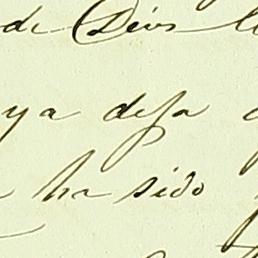 de Dios
ya deja
ha sido